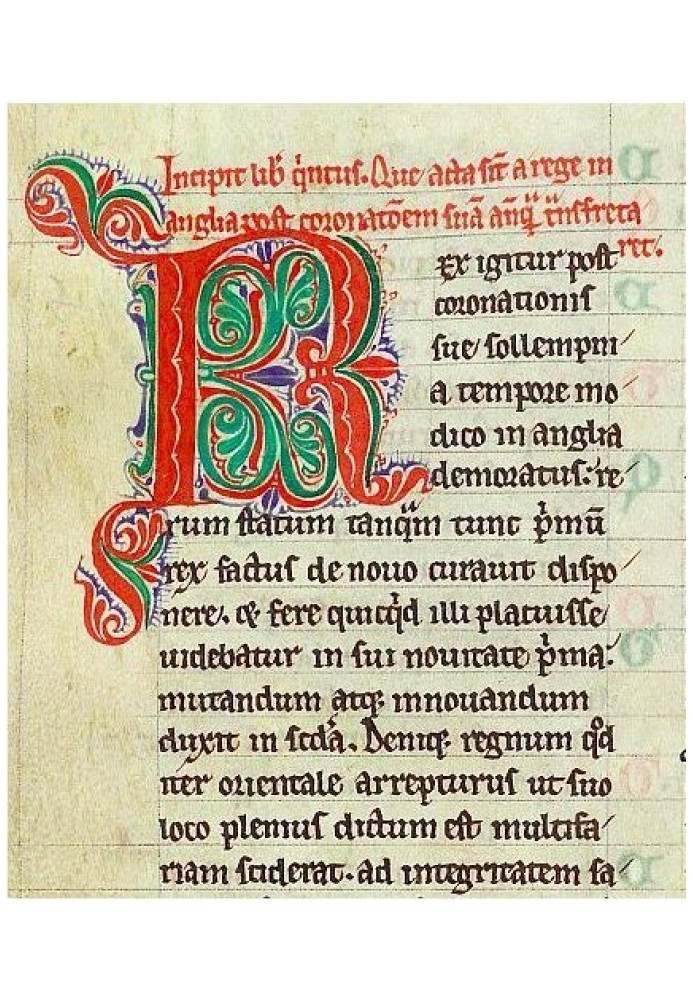 Incipit lib᾽ q̍ntus. Que acta sūt a rege in
anglia post coronatōem suā anq̄ᷓ t̄nsfreta
ret.
Rex igitur post
coronationis
sue sollempni
a tempore mo
dico in anglia
demoratus: re
rum statum tanqᷓm tunc p̍mū
rex factus de nouo curauit dispo
nere. & fere quicq̍d illi placuisse
uidebatur in sui nouitate p̍ma:
mutandum atq; innouandum
duxit in scd̄a. Deniq; regnum qͦd
iter orientale arrepturus ut suo
loco plenius dictum est multifa
riam sciderat. ad integritatem sa